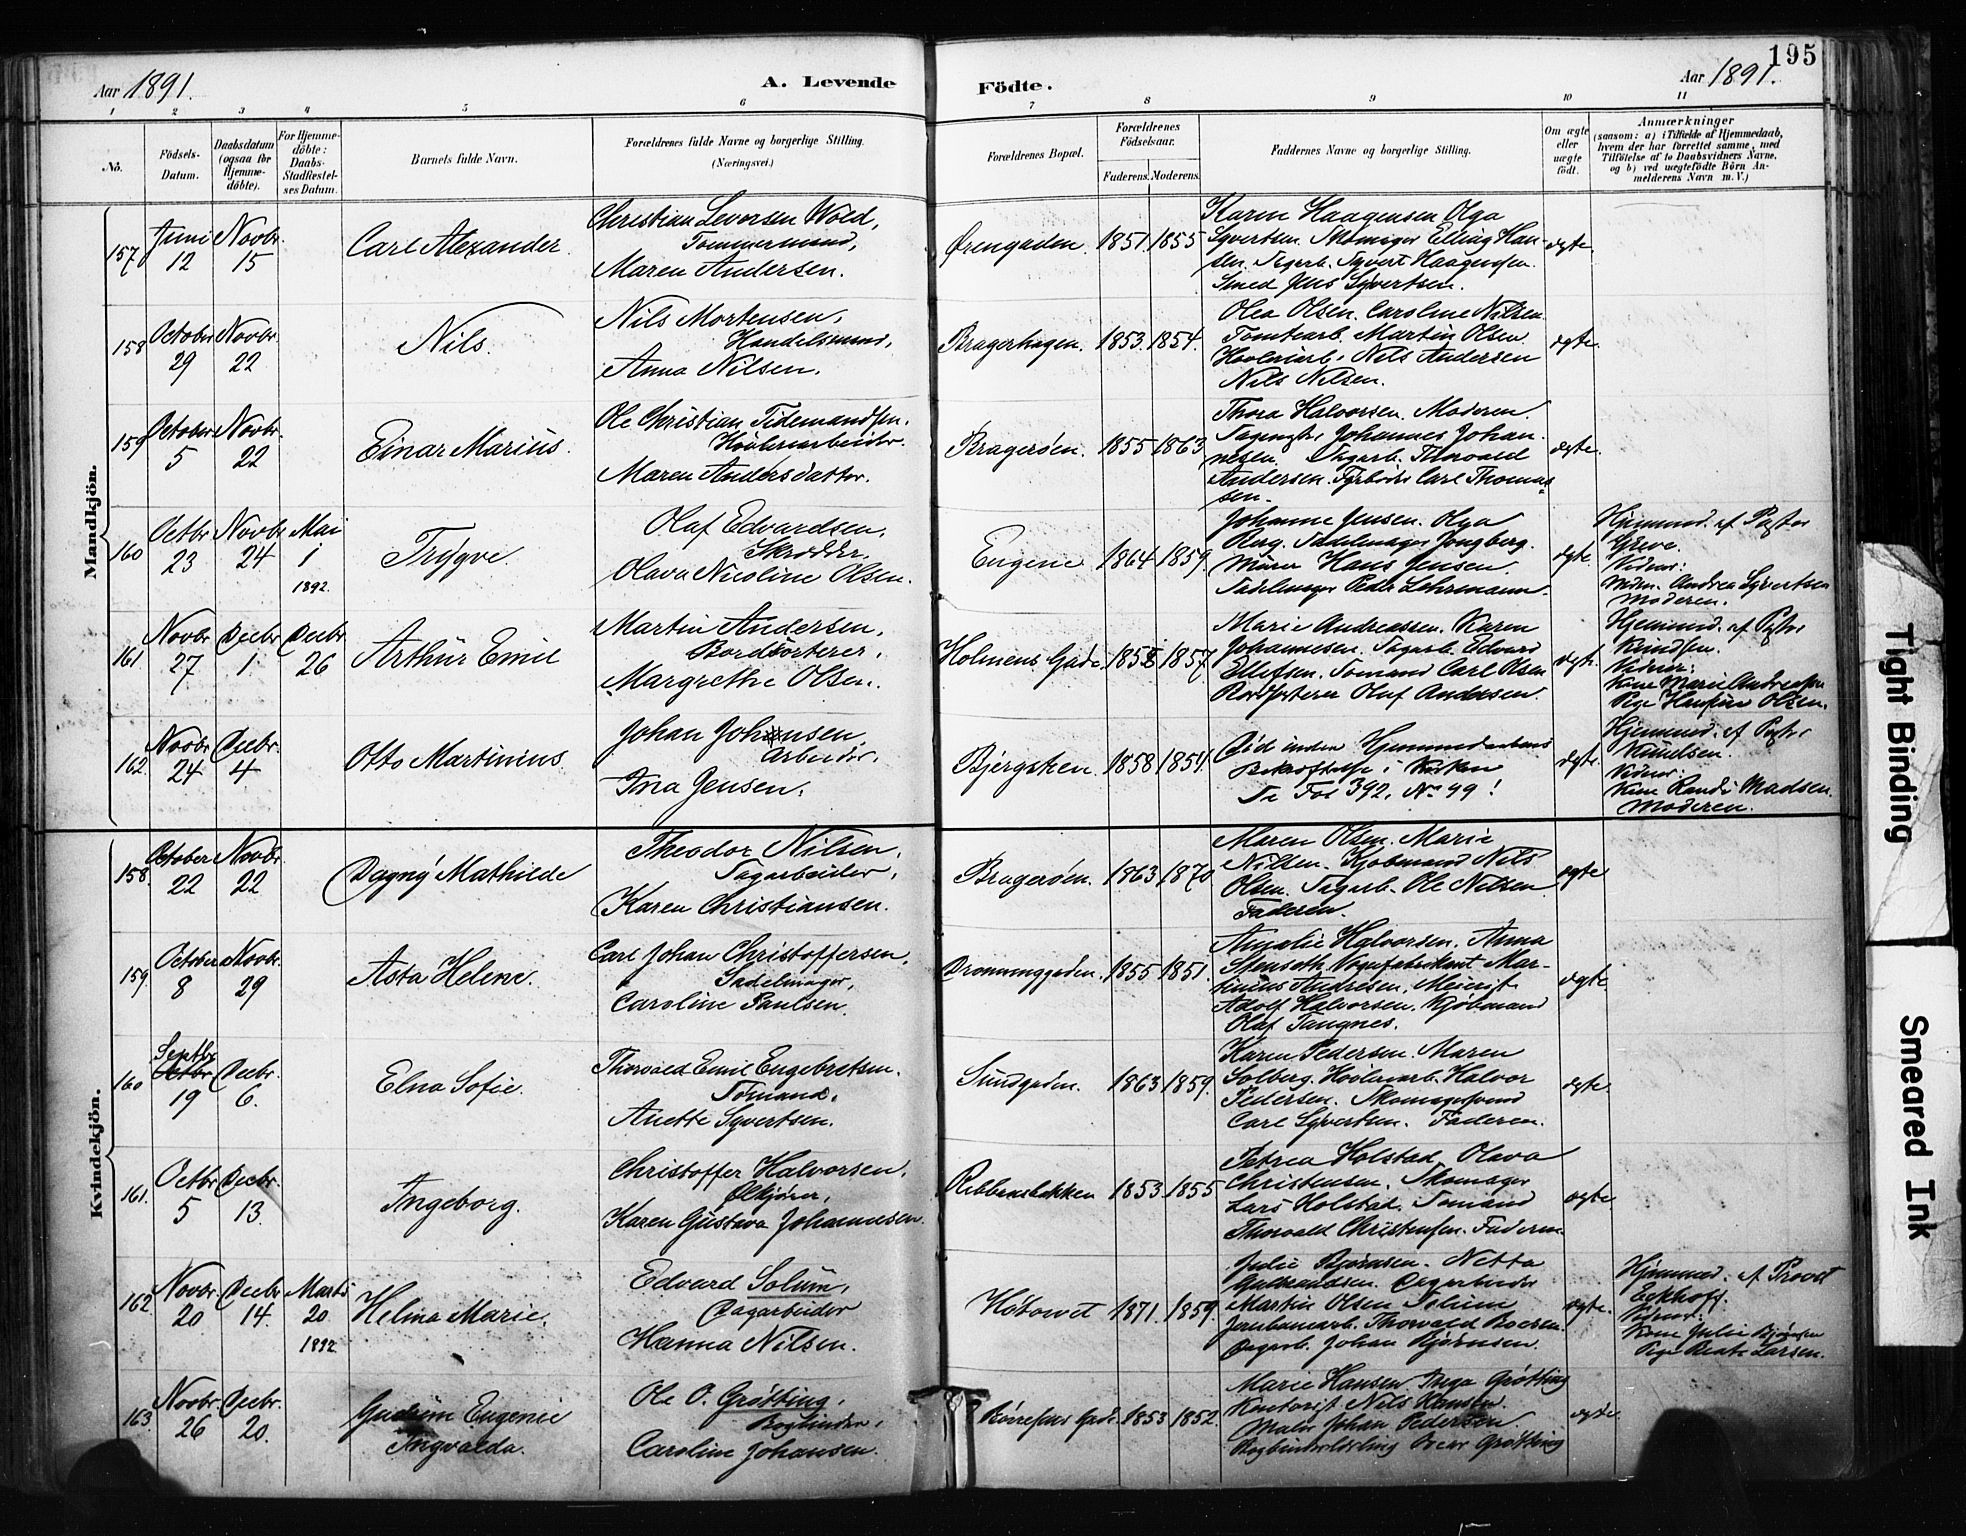 195
Aar 1891.
A. Levende
Födte.
Aar 1891.
1 2 3 4 5 6 7 8 9 10 11
No.
Födsels-
Datum.
Daabsdatum
(ogsaa for
Hjemme-
döbte).
For Hjemme-
döbte:
Daabs-
Stadfæstel-
ses Datum.
Barnets fulde Navn.
Forældrenes fulde Navne og borgerlige Stilling.
(Næringsvei.)
Forældrenes Bopæl.
Forældrenes
Födselsaar.
Faderens. Moderens.
Faddernes Navne og borgerlige Stilling.
Om ægte
eller
uægte
født.
Anmærkninger
(saasom: a) i Tilfælde af Hjemmedaab,
hvem der har forrettet samme, med
Tilföielse af to Daabsvidners Navne,
og b) ved uægtefödte Börn An-
melderens Navn m. V.)
Mandkjön.
157 Juni 12 Novbr. 15
Carl Alexander
Christian Levorsen Wold,
Tømmermand,
Maren Andersen.
Ørengaden. 1851. 1855
Karin Haagensen Olga
Syvertsen. Elling Han-
sen. Sagarb. Syvert Haagensen.
Smed Jens Syvertsen.
ægte.
158 October 29 Novbr. 22
Nils.
Nils Mortensen,
Handelsmand,
Anna Nilsen.
Bragerhagen. 1853. 1854.
Olea Olsen. Caroline Nilsen
Tomtearb. Martin Olsen
Høvleriarb. Nils Andersen
Nils Nilsen.
ægte.
159 October 5 Novbr. 22
Einar Marius.
Ole Christian Tidemandsen.
Høvleriarbeider.
Maren Andersdatter.
Bragerøen. 1855 1863
Thora Halvorsen. Moderen.
Johannes Johan-
nesen. Thorvald
Andersen. Fyrbøder Carl Thomas-
sen.
ægte.
160 Octbr 23 Novbr 24 Mai 1 1892.
Trygve.
Olaf Edvardsen,
Skrædder,
Olava Nicoline Olsen.
Eugene 1864 1859.
Johanne Jensen. Olga
Berg. Sadelmager Jongberg.
Murer Hans Jensen.
Sadelmager Peder Lehrmann.
ægte.
Hjemmed. af Pastor
Greve.
Vidner:
Andrea Syvertsen
Moderen.
161. Novbr 27 Decbr 1 Decbr. 26
Arthur Emil
Martin Andersen,
Bordsorterer,
Margrethe Olsen.
Holmens Gade. 1857
Marie Andreassen. Karen
Johannesen. Sagarb. Edvard
Ellefsen. Tomand Carl Olsen
Bordsorterer Oluf Andersen.
ægte.
Hjemmed. af Pastor
Knudsen.
Vidner:
Kone Marie Andreassen
Pige Olsen.
162. Novbr 24 Decbr. 4
Otto Martinius
Johan Johnsen
Arbeider,
Ina Jensen.
Bjergsken. 1858 1854.
Død inden Hjemmedaabens
Bekræftelse i Kirken
Se Fol 392, No 49!
ægte.
Hjemmed. af Pastor
Knudsen.
Vidner:
Kone Randi Madsen.
Moderen.
Kvindekjön.
158. October 22 Novbr. 22
Dagny Mathilde
Theodor Nilsen,
Sagarbeider,
Karen Christiansen.
Bragerøen. 1863 1870
Maren Olsen. Marie
Nilsen. Kjøbmand Nils
Olsen. Sagarb. Ole Nilsen
Faderen.
ægte
159. October 8 Novbr. 29
Asta Helene.
Carl Johan Christoffersen,
Sadelmager,
Caroline Paulsen.
Dronninggaden. 1855 1851.
Amalie Halvorsen. Anna
Stenseth. Vognfabrikant Mar-
tinius Andresen. Meierist
Adolf Halvorsen. Kjøbmand
Olaf Tangnes.
ægte.
160 Septbr 19 Decbr. 6.
Elna Sofie.
Thorvald Emil Engebretsen.
Tomand.
Anette Syvertsen.
Sundgaden. 1863 1859.
Karen Pedersen. Maren
Solberg. Høvleriarb. Halvor
Pedersen. Skomagersvend
Carl Syvertsen. Faderen.
ægte.
161. Octbr 5 Decbr. 13.
Ingeborg.
Christoffer Halvorsen,
Ølkjører,
Karen Gustava Johannesen.
Ribbensbakken 1853. 1855
Petrea Holstad. Olava
Christensen. Skomager
Lars Holstad. Tomand
Thorvald Christensen. Faderen.
ægte
162. Novbr. 20 Decbr 14. Marts 20 1892
Helma Marie.
Edvard Solum,
Dagarbeider
Hanna Nilsen.
1871. 1859.
Julie Bjørnsen. Netta
Gulbrandsen. Dagarbeider
Martin Olsen Solum
Jernbanearb. Thorvald
Dagarb. Johan Bjørnsen.
ægte.
Hjemmed. af Provst
Eckhoff.
Vidner:
Kone Julie Bjørnsen
Pige Beate Larsen.
163. Novbr 26 Decbr. 20.
Gudrun Eugenie
Ingvalda.
Ole O. Grøtting,
Bogbinder,
Caroline Johansen.
Gade. 1853. 1852.
Marie Hansen Inga Grøtting
Kontorist Nils Hansen.
Maler Johan Pedersen
Grøtting
ægte.
Tight Binding
Smeared Ink